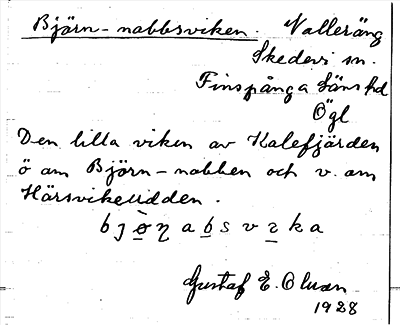 Björn-nabbsviken. Valleräng
Skedevi sn.
Finspånga läns hd
Ögl
Den lilla viken av Kalefjärden
ö om Björn-nabben och v. om
Härsvikeudden.
Gustaf E. Olsson
1928